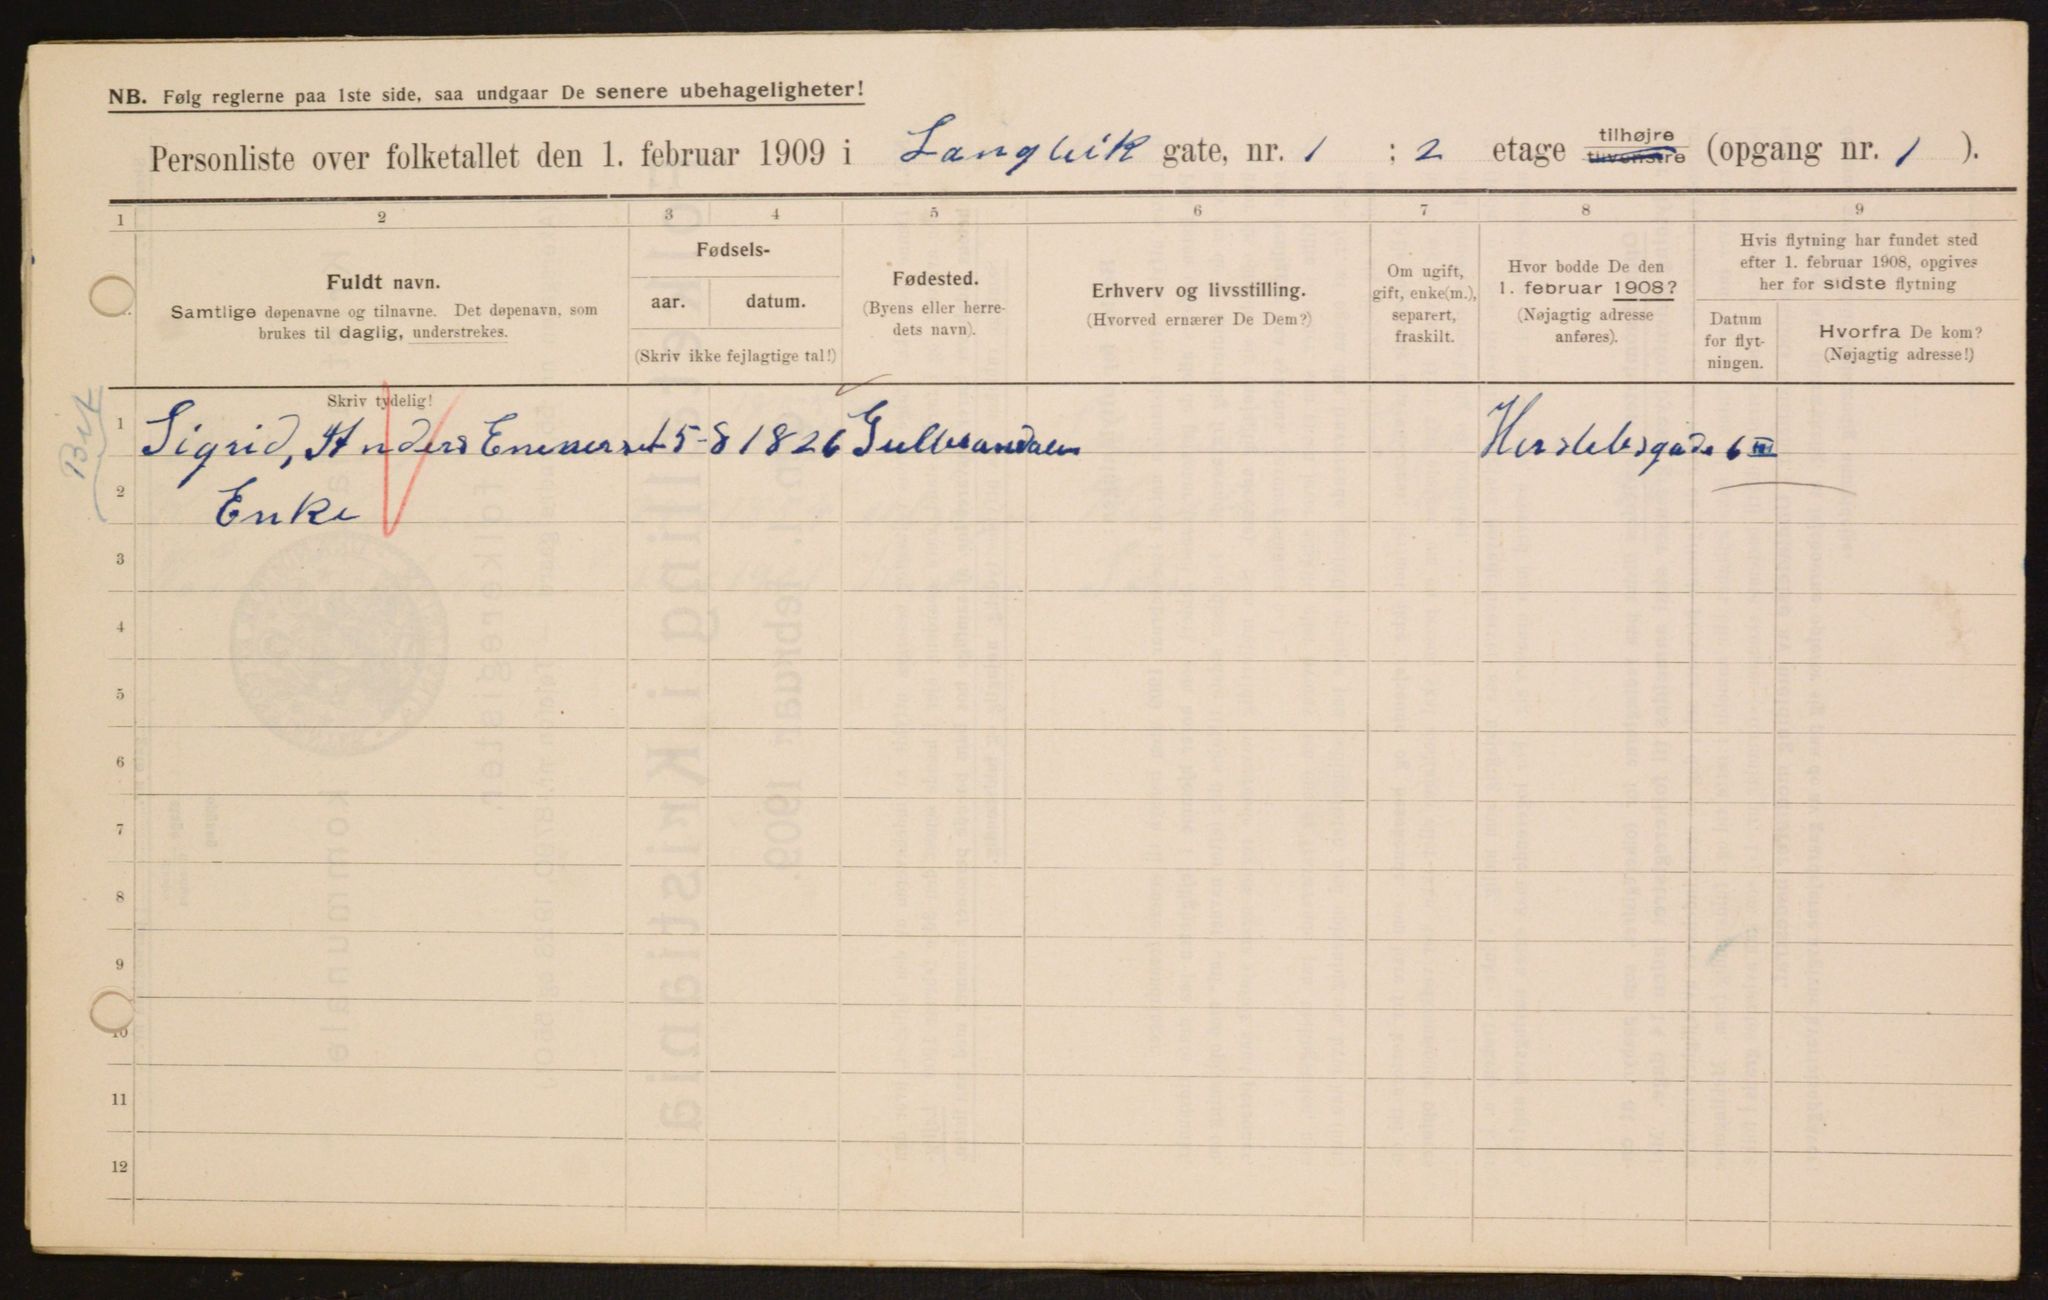 NB. Følg reglerne paa 1ste side, saa undgaar De senere ubehageligheter!
Personliste over folketallet den 1. februar 1909 i Langleik gate, nr. 1 ; 2 etage tilhøjre tilvenstre (opgang nr. 1 ).
1 2 3 4 5 6 7 8 9
Fuldt navn.
Samtlige døpenavne og tilnavne. Det døpenavn, som
brukes til daglig, understrekes.
Fødsels-
aar. datum.
(Skriv ikke fejlagtige tal!)
Fødested.
(Byens eller herre-
dets navn).
Erhverv og livsstilling.
(Hvorved ernærer De Dem?)
Om ugift,
gift, enke(m.),
separert,
fraskilt.
Hvor bodde De den
1. februar 1908?
(Nøjagtig adresse
anføres).
Hvis flytning har fundet sted
efter 1. februar 1908, opgives
her for sidste flytning
Datum
for flyt-
ningen.
Hvorfra De kom?
(Nøjagtig adresse!)
Skriv tydelig!
1 Sigrid, Anders 5-8 1826 Gulbrandalen Herslebsgade 6 III
2 Enke
3
4
5
6
7
8
9
10
11
12